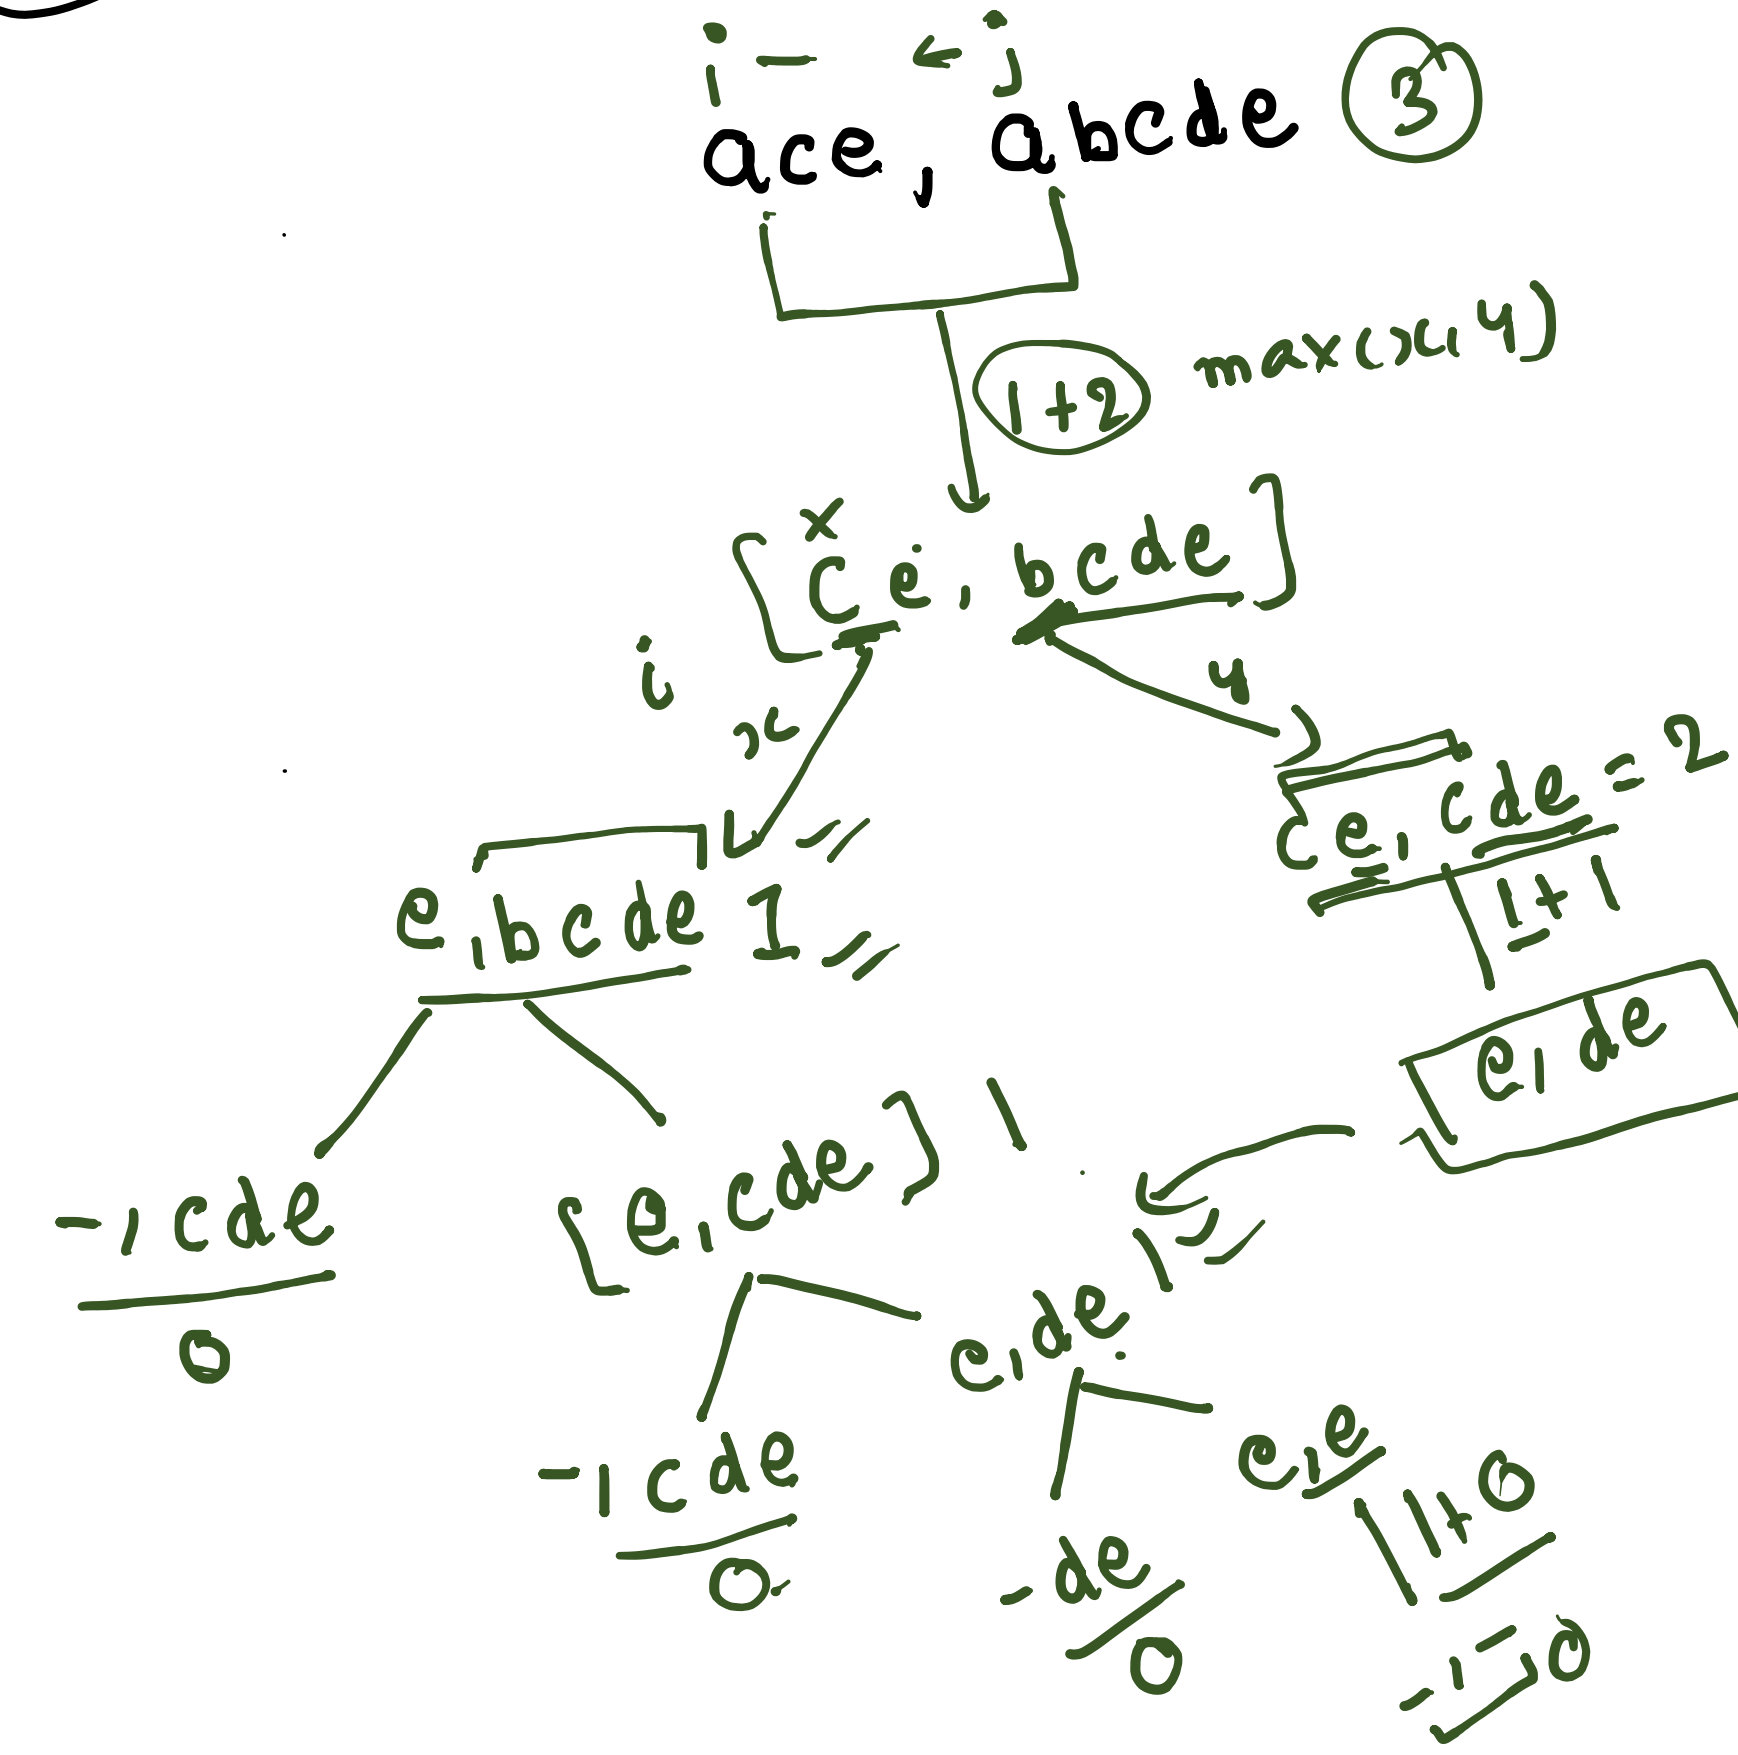 i – ← j
ace, abcde 3
1+2 max(x, y)
x
[ce, bcde]
i
x y
ce, cde = 2
1+1
e,bcde 1
e, de
-, cde
0
[e, cde] 1
e, de 1
-, cde
0
e, e
1+0
- de
0
-, - 0